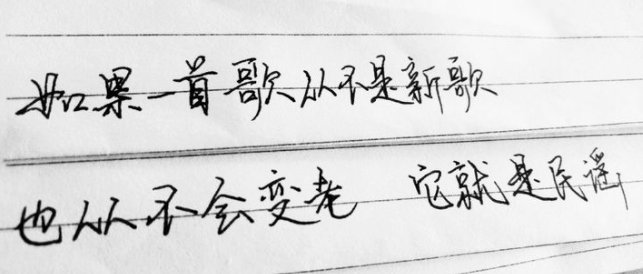 如果一首歌从不是新歌
也从不会变老 它就是民谣